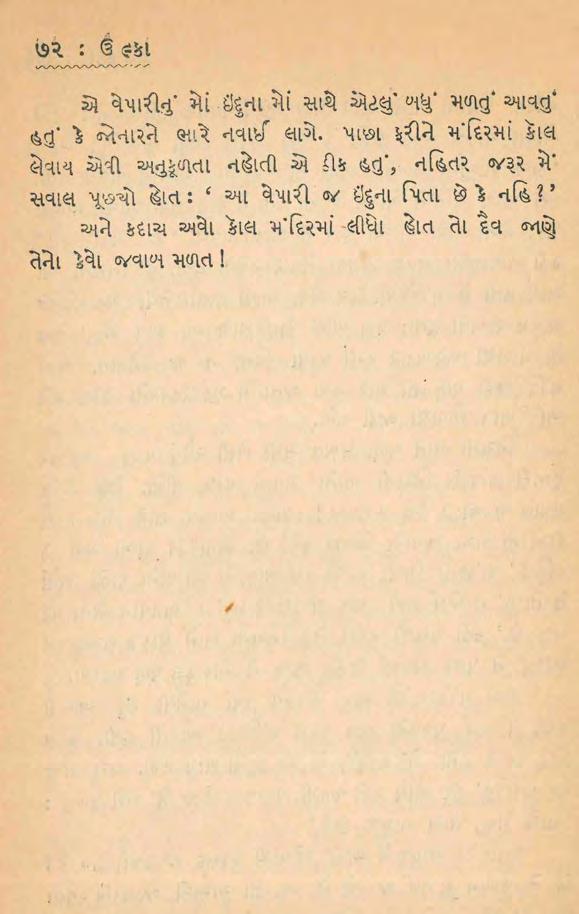 ૭૨ : ઉલ્કા
એ વેપારીનું મોં ઇંદુના મોં સાથે એટલું બધું મળતું આવતું
હતું કે જોનારને ભારે નવાઈ લાગે. પાછા ફરીને મંદિરમાં કૉલ
લેવાય એવી અનુકૂળતા નહોતી એ ઠીક હતું, નહિતર જરૂર મેં
સવાલ પૂછ્યો હોત: ‘ આ વેપારી જ ઇંદુના પિતા છે કે નહિ ?’
અને કદાચ અવો કૉલ મંદિરમાં લીધો હોત તો દૈવ જાણે
તેનો કેવો જવાબ મળત !